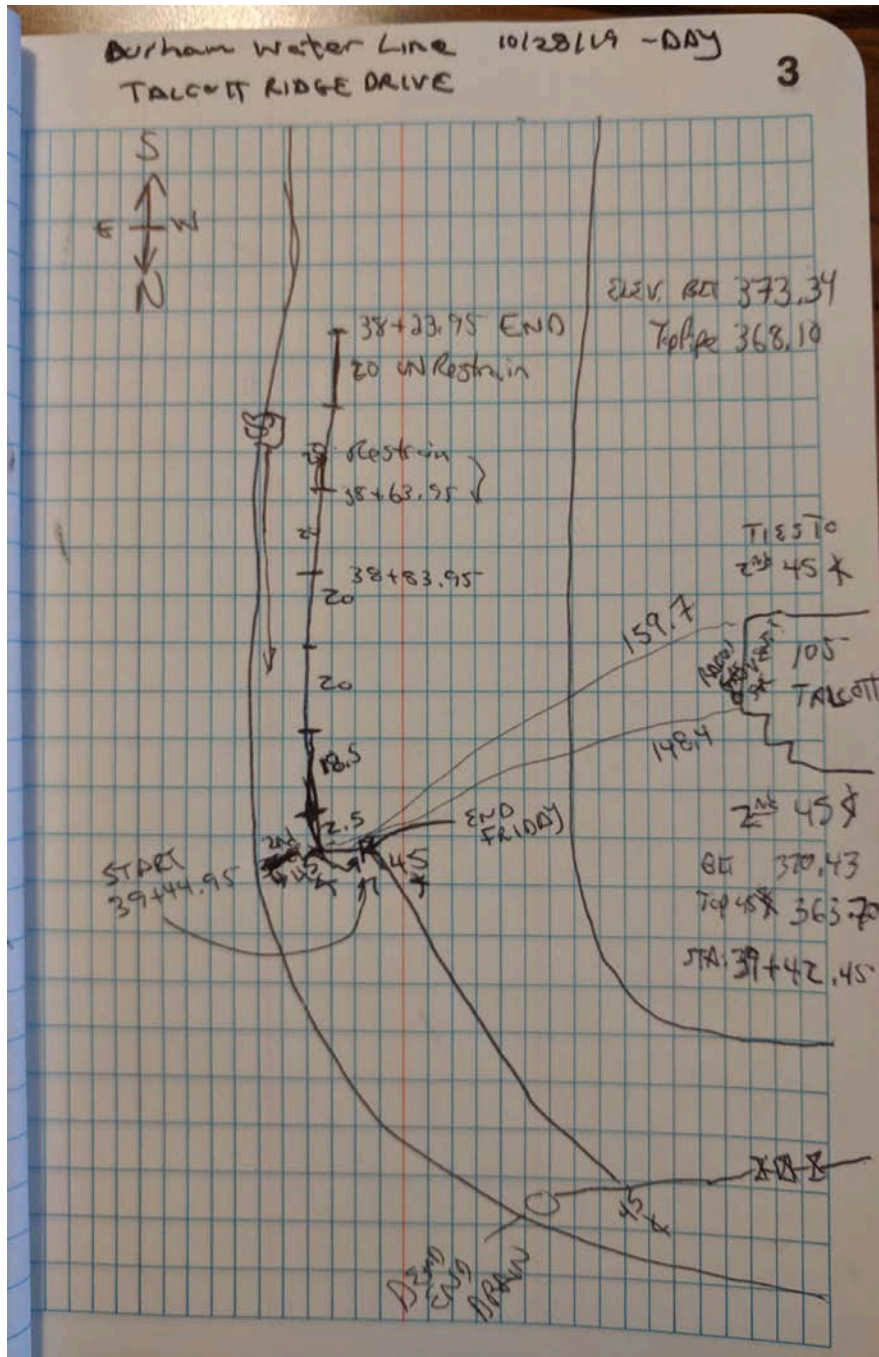 Durham Water Line 10/28/19 - DAY
TALCOTT RIDGE DRIVE
3
S
E W
N
ELEV. 373.34
368.10
38+23.95 END
20 UN Restrain
20 Restrain
38+63.95
20
38+83.95
20
20
18.5
2.5
TIES TO
2nd 45
159.7
148.4
105
TALCOTT
END
FRIDAY
START
39+44.95
2nd
45
45
2nd 45
370.43
Top 45 363.70
STA: 39+42.45
45
END
DRAIN